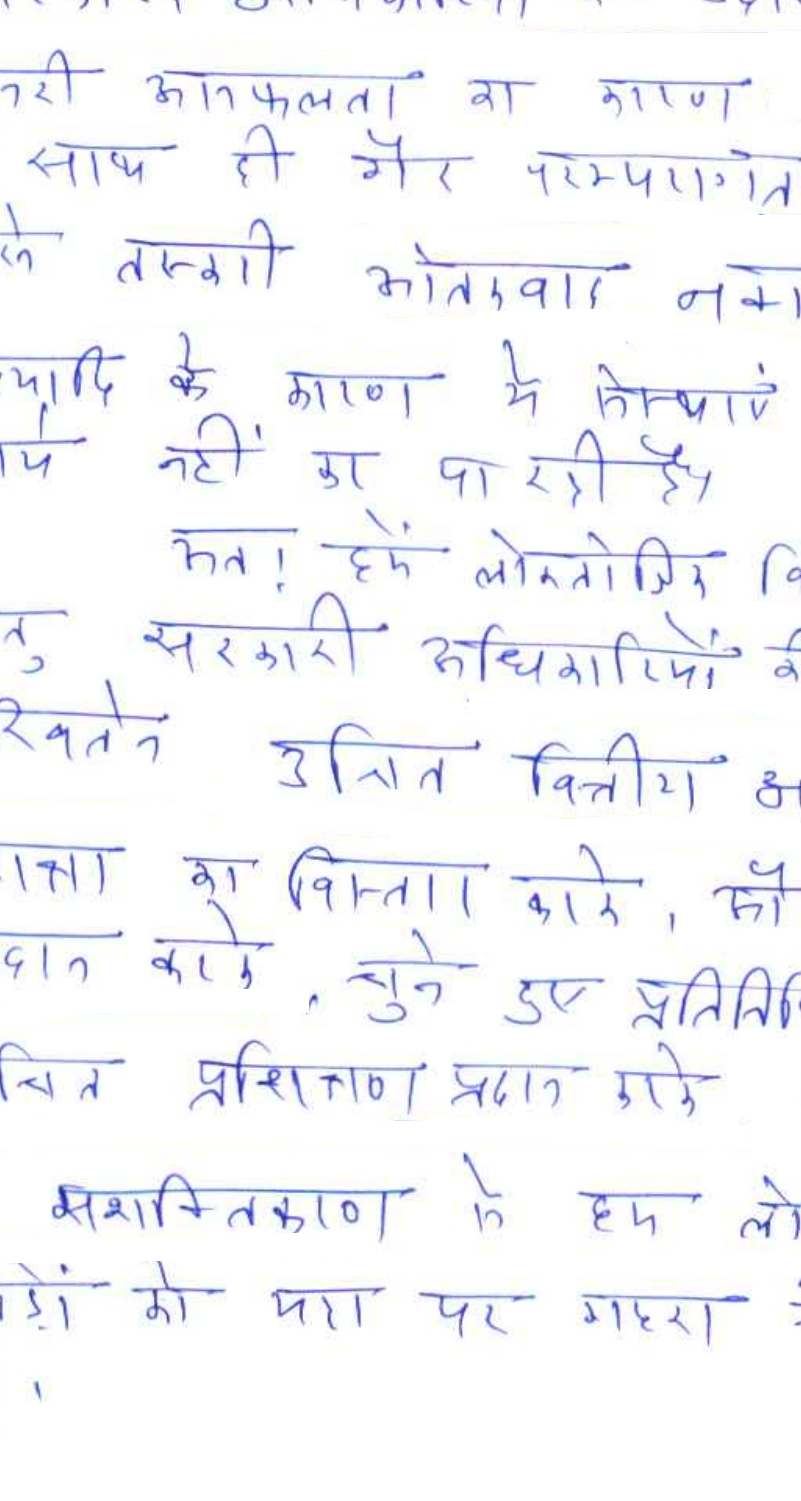 नरी असफलता का कारण
साथ ही गैर परम्परागत
जैसे तस्करी आतंकवाद नक्स
त्यादि के कारण ये संस्थाएं
र्य नहीं कर पा रही है।
अतः हमें लोकतांत्रिक वि
तु सरकारी अधिकारियों की
रिवर्तन उचित वित्तीय अ
का विस्तार करके, और
दान करके, चुने हुए प्रतिनिधि
चित प्रशिक्षण प्रदान करके
सशक्तिकरण से हम लो
ड़ों को धरा पर गहरा
।